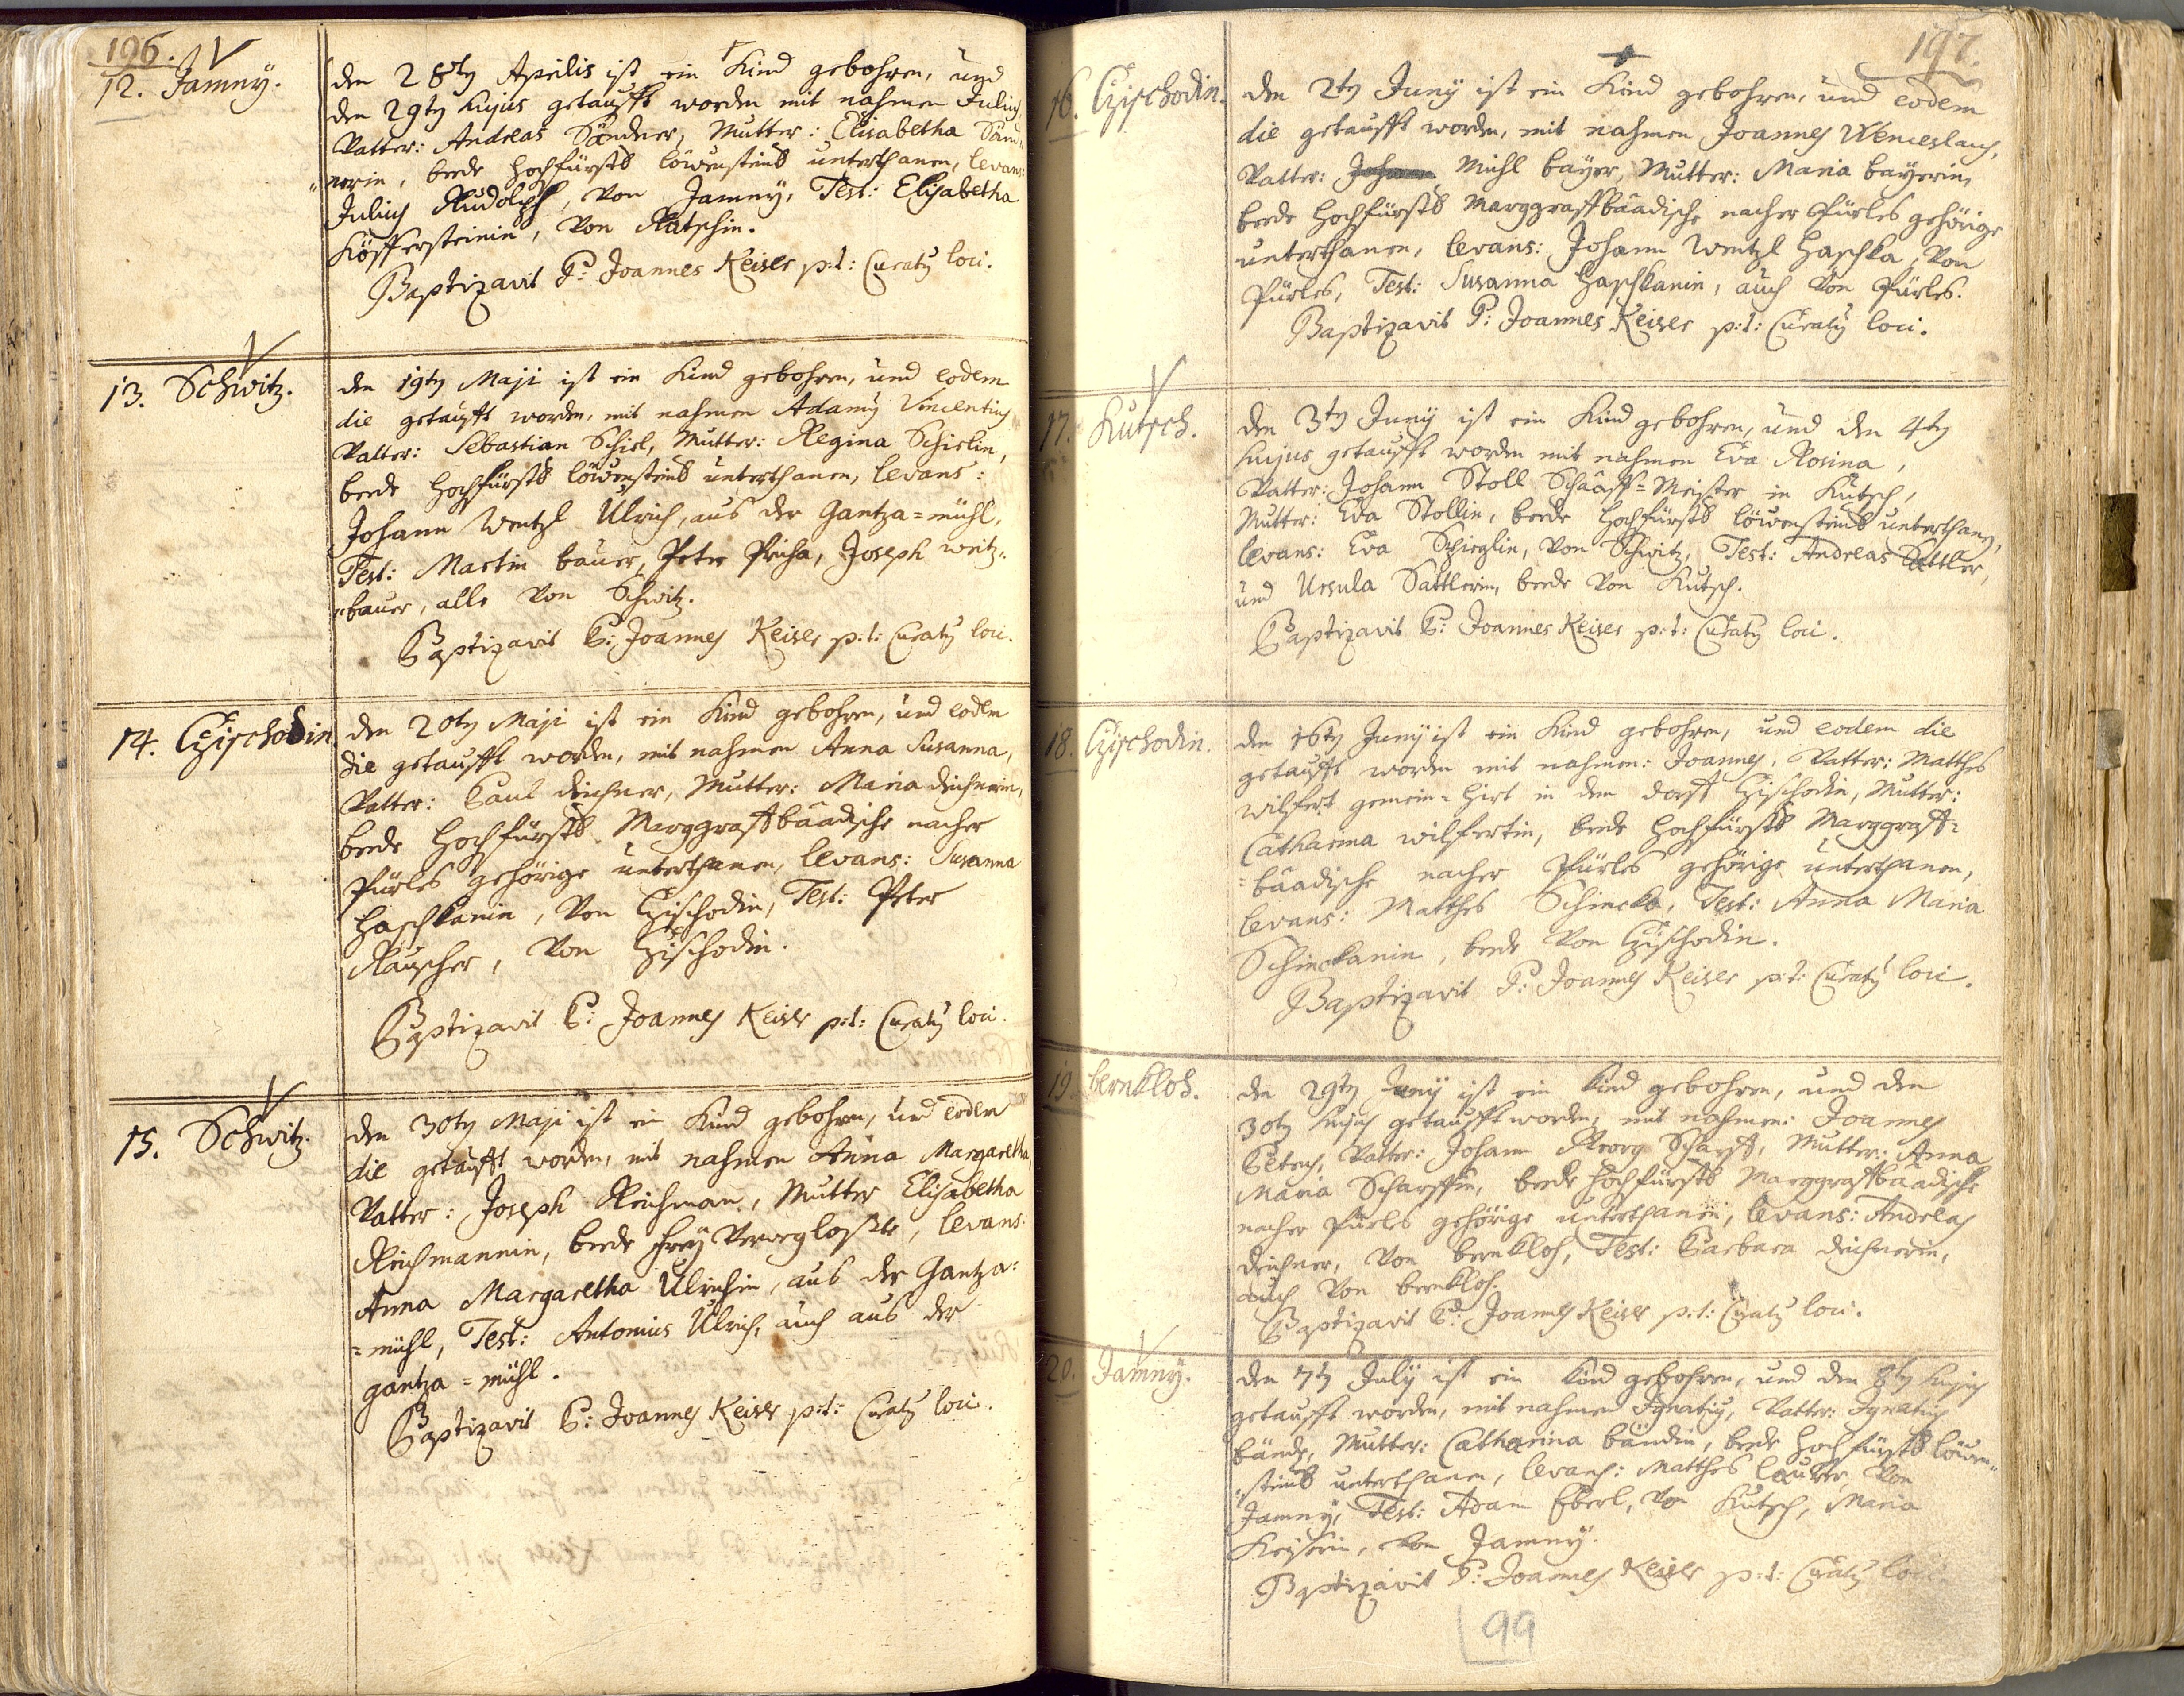 196.
12. Jamnÿ.
den 28ty Aprilis ist ein Kind gebohren, und
den 29ty hujus getaufft worden mit nahmen Julius
Vatter: Andreas Söndner, Mutter: Elisabetha Sönd¬
nerin, beede hochfürstl löwensteinl unterthanen, levans:
Julius Rudolph, von Jamnÿ, Test: Elisabetha
Höffersteinin, von Ratschin.
Baptizavit P: Joannes Keiser p:t: Curatus loci.
13. Schwitz.
den 19ty Maji ist ein Kind gebohren, und eodem
die getaufft worden, mit nahmen Adamus Vincentius
Vatter: Sebastian Schiel, Mutter: Regina Schielin,
beede hochfürstl löwensteinl unterthanen, levans:
Johann Wentzl Ulrich, aus der Gantza=mühl,
Test: Martin bauer, Peter Pricha, Joseph weitz=
=bauer, alle von Schwitz.
Baptizavit P: Joannes Keiser p:t: Curatus loci.
14. Czischodin
den 20ty Maji ist ein Kind gebohren, und eodem
die getaufft worden, mit nahmen Anna Susanna,
Vatter: Paul deichner, Mutter: Maria deichnerin,
beede hochfürstl. Marggraffbäadische nacher
Pürles gehörige unterthanen, levans: Susanna
Haschkanin, von Czischodin, Test: Peter
Rauscher, von Czischodin.
Baptizavit P: Joannes Keiser p:t: Curatus loci.
15. Schwitz.
den 30ty Maji ist ein Kind gebohren, und eodem
die getaufft worden, mit nahmen Anna Margaretha
Vatter: Joseph Reichman, Mutter Elisabetha
Reichmannin, beede freÿ, levans:
Anna Margaretha Ulrichin, aus der Gantza=
=mühl, Test: Antonius Ulrich, auch aus der
gantza=mühl.
Baptizavit P: Joannes Keiser p:t: Curatus loci.
197.
16. Czischodin.
den 2ty Junÿ ist ein Kind gebohren, und eodem
die getaufft worden, mit nahmen Joannes Wenceslaus,
Vatter: Johann Michl baÿer, Mutter: Maria baÿerin,
beede hochfürstl Marggraffbäadische nacher Pürles gehörige
unterthanen, levans: Johann Wentzl Haschka, von
Pürles, Test: Susanna Haschkanin, auch von Pürles.
Baptizavit P: Joannes Keiser p:t: Curatus loci.
17. Kutsch.
den 3ty Junÿ ist ein Kind gebohren, und den 4ty
hujus getaufft worden mit nahmen Eva Rosina,
Vatter: Johann Stoll Schääff=Meister in Kutsch,
Mutter: Eva Stollin, beede hochfürstl löwensteinl unterthanen,
levans: Eva Schieglin, von Schwitz, Test: Andreas Sattler,
und Ursula Sattlerin, beede von Kutsch.
Baptizavit P: Joannes Keiser p:t: Curatus loci.
18. Czischodin.
den 16ty Junÿ ist ein Kind gebohren, und eodem die
getaufft worden mit nahmen: Joannes, Vatter: Matthes
wilfert gemein=Hirt in dem dorff Czischodin, Mutter:
Catharina wilfertin, beede hochfürstl Marggraff=
=bäadische nacher Pürles gehörige unterthanen,
levans: Matthes Schincka, Test: Anna Maria
Schinckanin, beede von Czischodin.
Baptizavit P: Joannes Keiser p:t: Curatus loci.
19. bernkloh.
den 29ty Junÿ ist ein Kind gebohren, und den
30ty hujus getaufft worden, mit nahmen: Joannes
Petrus, Vatter: Johann Georg Scharff, Mutter: Anna
Maria Scharffin, beede hochfürstl Marggraffbäadische
nacher Pürles gehörige unterthanen, levans: Andreas
deichner, von bernkloh, Test: Barbara deichnerin,
auch von bernkloh.
Baptizavit P: Joannes Keiser p:t: Curatus loci.
20. Jamnÿ.
den 7ty Julÿ ist ein Kind gebohren, und den 8ty hujus
getaufft worden, mit nahmen Ignatius, Vatter: Ignatius
bändl, Mutter: Catharina bändlin, beede hochfürstl löwen=
=steinl unterthanen, levans: Matthes Lauter, von
Jamnÿ, Test: Adam Eberl, von Kutsch, Maria
Keiserin, von Jamnÿ.
Baptizavit P: Joannes Keiser p:t: Curatus loci.
99